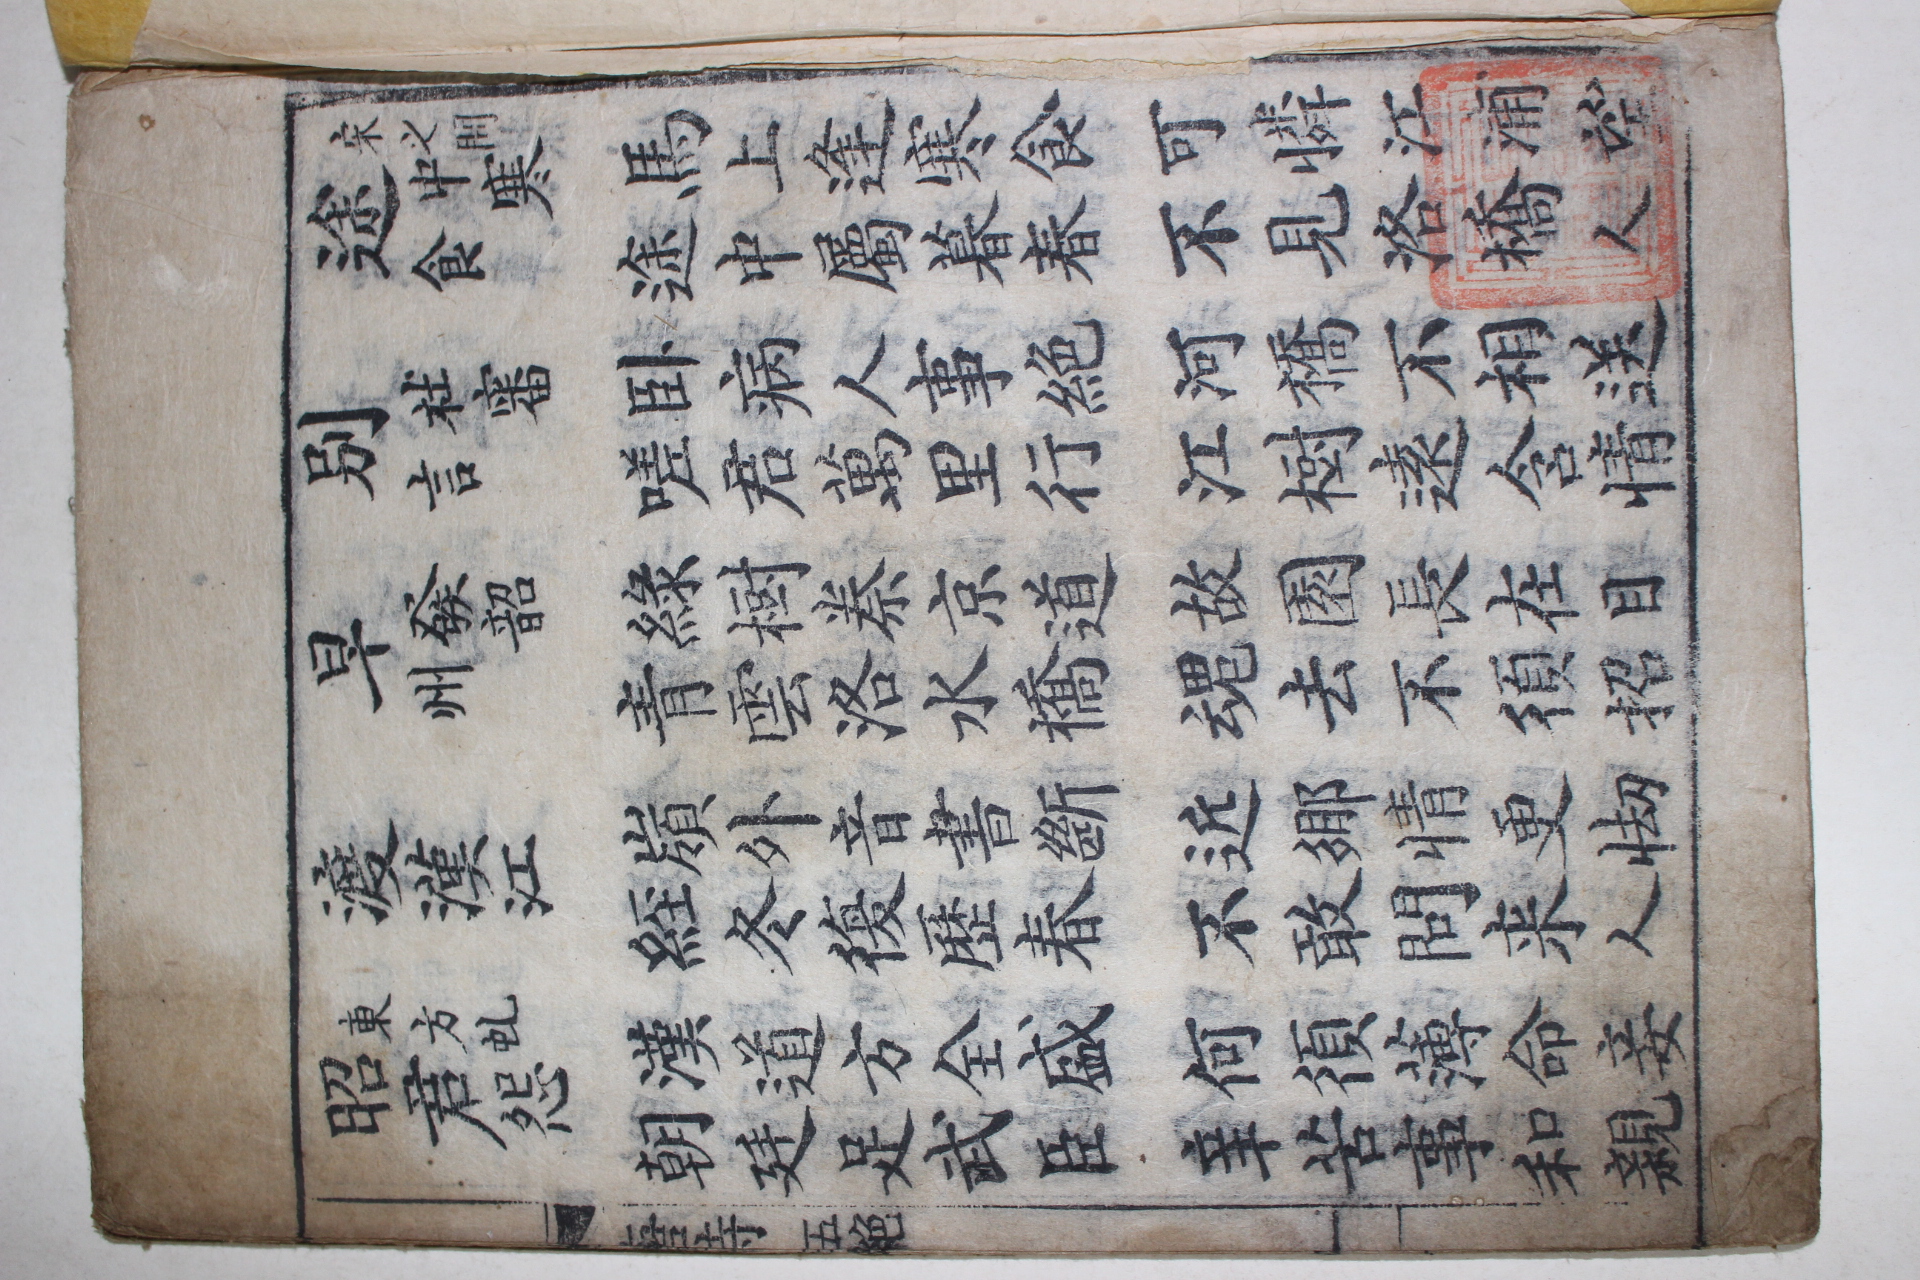 宋之問
途中寒食
馬上逢寒食 可憐江浦望
途中屬暮春 不見洛橋人
別杜審言
臥病人事絶 河橋不相送
嗟君萬里行 江樹遠含情
早發韶州
綠樹秦京道 故園長在目
青雲洛水橋 魂去不須招
渡漢江
嶺外音書斷 近鄉情更怯
經冬復歷春 不敢問來人
東方虬
昭君怨
漢道方全盛 何須薄命妾
朝廷足武臣 辛苦事和親
五絶